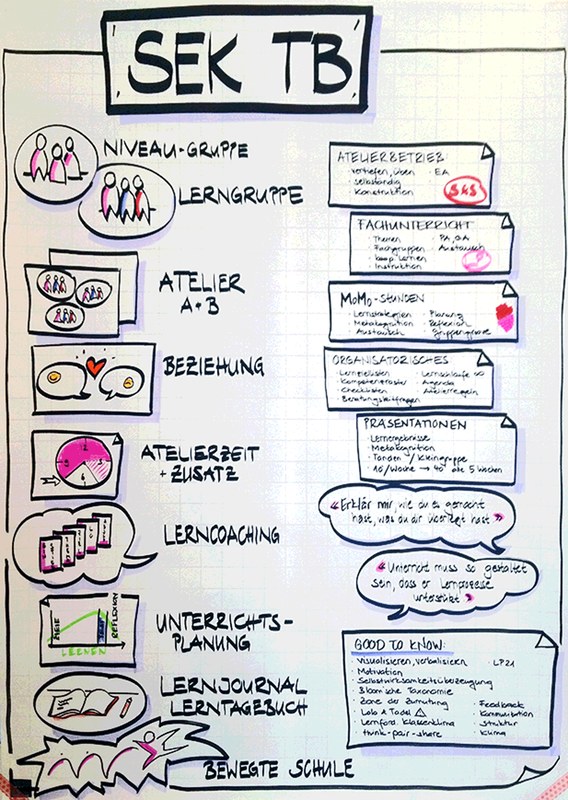 SEK TB
NIVEAU-GRUPPE
LERNGRUPPE
ATELIER
A+B
BEZIEHUNG
12
3
6
9
ATELIERZEIT
+ ZUSATZ
LERNCOACHING
ZIELE
LERNEN
REFLEXION
UNTERRICHTS-
PLANUNG
LERNJOURNAL
LERNTAGEBUCH
BEWEGTE SCHULE
ATELIERBETRIEB
· vertiefen, üben · EA
· selbständig
· Konstruktion
SAS
FACHUNTERRICHT
· Themen · PA, GA
· Fachgruppen · Austausch
· koop. Lernen
· Instruktion
MOMO-STUNDEN
· Lernstrategien · Planung
· Metakognition · Reflexion
· Austausch · Gruppengrösse
ORGANISATORISCHES
· Lernziellisten · Lernschlaufe ∞
· Kompetenzraster · Agenda
· Checklisten · Atelierregeln
· Beratungsleitfragen
PRÄSENTATIONEN
· Lernergebnisse
· Metakognition
· Tandem / Kleingruppe
· 10/Woche → 40 alle 5 Wochen
«Erklär mir, wie du es gemacht
hast, was du dir überlegt hast»
«Unterricht muss so gestaltet
sein, dass er Lernprozesse
unterstützt»
GOOD TO KNOW:
· visualisieren, verbalisieren · LP21
· Motivation
· Selbstwirksamkeitsüberzeugung
· Bloomsche Taxonomie
· Zone der Zumutung · Feedback
· Lob & Tadel · Kommunikation
· Lernförd. Klassenklima · Struktur
· think-pair-share · Klima